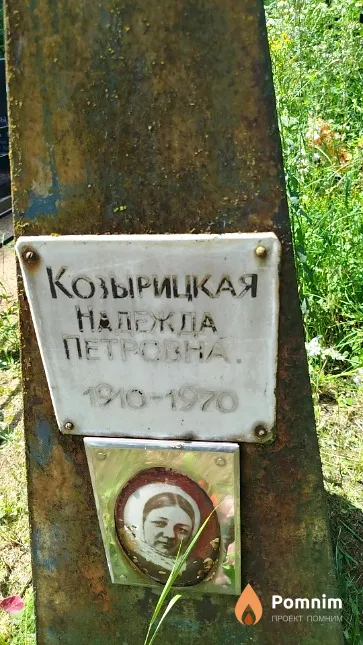 Козырицкая
Надежда
Петровна
1910-1970
Pomnim
ПРОЕКТ ПОМНИМ